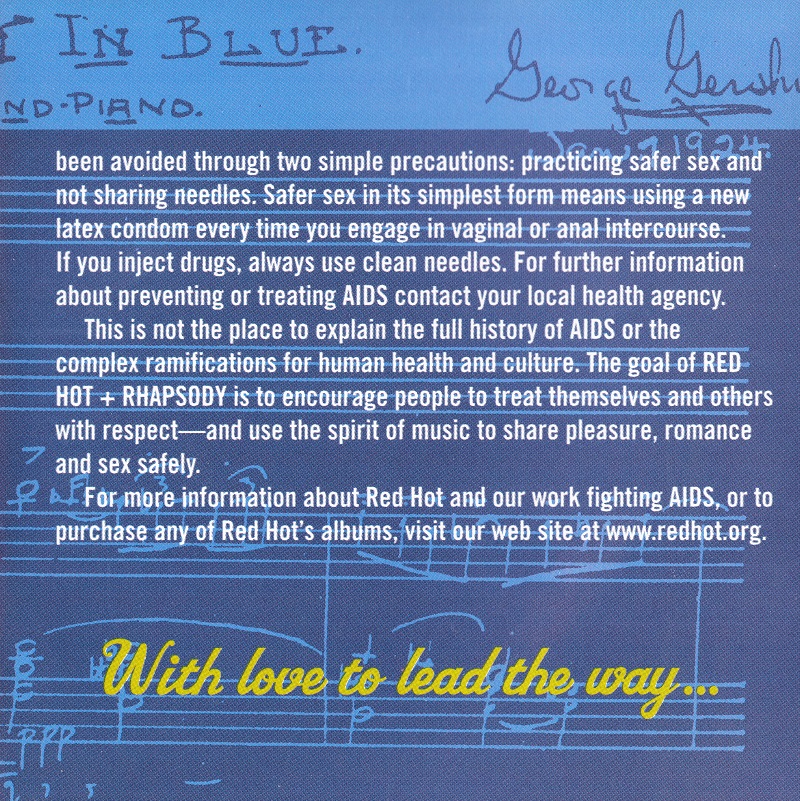 IN BLUE.
George
ND-PIANO.
1924.
been avoided through two simple precautions: practicing safer sex and
not sharing needles. Safer sex in its simplest form means using a new
latex condom every time you engage in vaginal or anal intercourse.
If you inject drugs, always use clean needles. For further information
about preventing or treating AIDS contact your local health agency.
This is not the place to explain the full history of AIDS or the
complex ramifications for human health and culture. The goal of RED
HOT + RHAPSODY is to encourage people to treat themselves and others
with respect—and use the spirit of music to share pleasure, romance
and sex safely.
For more information about Red Hot and our work fighting AIDS, or to
purchase any of Red Hot's albums, visit our web site at www.redhot.org.
With love to lead the way...
ppp